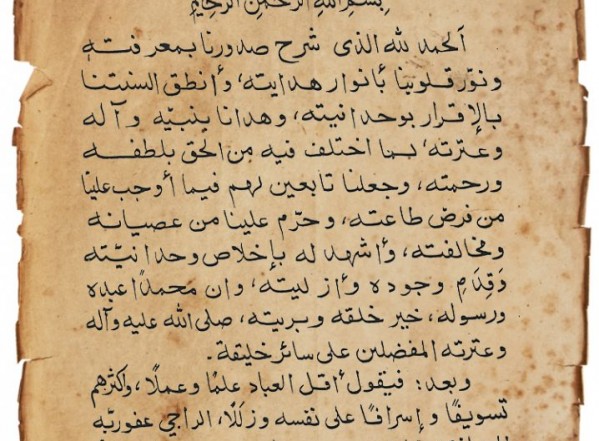 بِسْمِ اللهِ الرَّحْمٰنِ الرَّحِيْمِ
اَلحمد لله الذى شرح صدورنا بمعرفته
ونوّر قلوبنا بأنوار هدايته، وأنطق السنتنا
بالإقرار بوحدانيته، وهدانا بنبيّه وآله
وعترته، لما اختلف فيه مِن الحق بلطفه
ورحمته، وجعلنا تابعين لهم فيما أوجب علينا
من فرض طاعته، وحرّم علينا من عصيانه
ومخالفته، وأشهد له بإخلاص وحدانيّته
وَقِدَمِ وجوده وأزليته، وان محمداً عبده
ورسوله، خير خلقه وبريته، صلى الله عليه وآله
وعترته المفضلين على سائر خليقة.
وبعد: فيقول أقل العباد علمًا وعملًا، واكثرهم
تسويفًا وإسرافًا على نفسه وزللًا، الراجي عفو ربّه